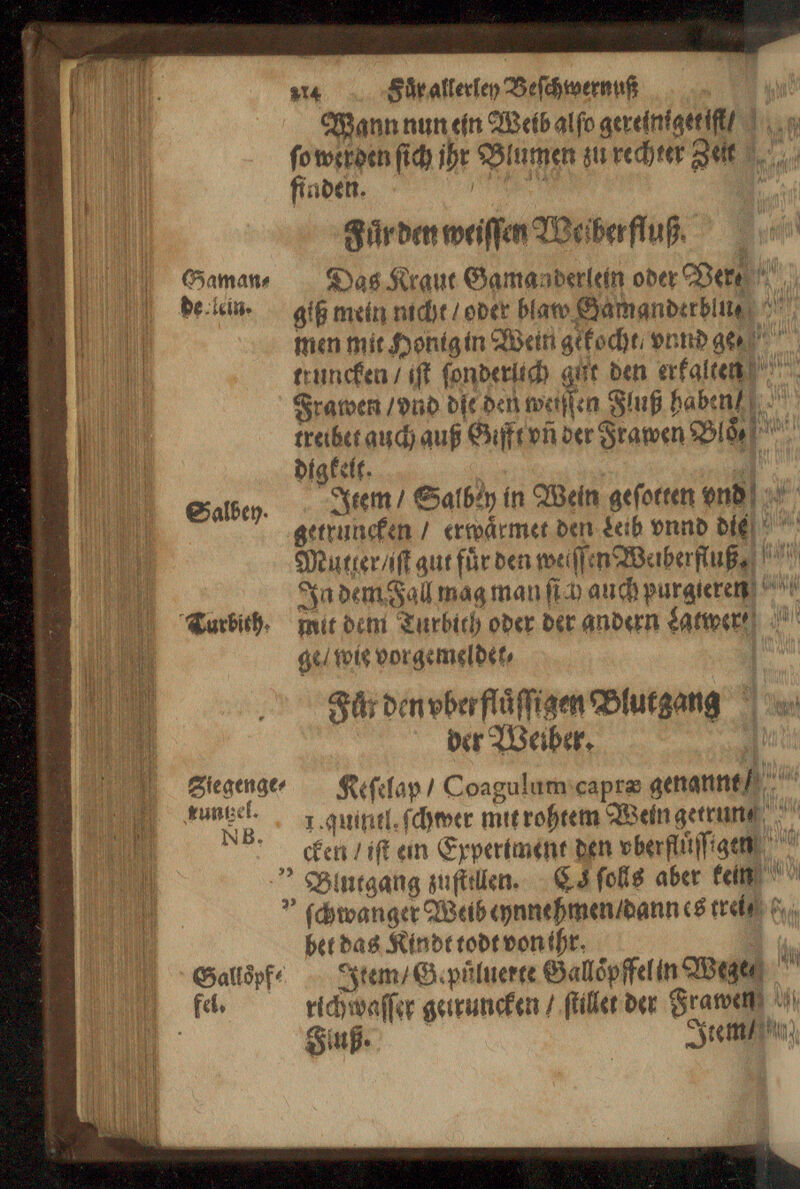 214 Fůr allerley Beſchwernuß
Wann nun ein Weib alſo gereiniget iſt/
ſo werden ſich jhr Blumen zu rechter Zeit
finden.
Fůr den weiſſen Weiberfluß.
Gaman⸗
derlein.
Das Kraut Gamanderlein oder Ver⸗
giß mein nicht / oder blaw Gamanderblu⸗
men mit Honig in Wein gekocht / vnnd ge⸗
truncken / iſt ſonderlich gut den erkalten
Frawen / vnd die den weiſſen Fluß haben /
treibet auch auß Gifft vñ der Frawen Blö⸗
digkeit.
Salbey.
Item / Salbey in Wein geſotten vnd
getruncken / erwårmet den Leib vnnd die
Mutter / iſt gut fůr den weiſſen Weiberfluß.
In dem Fall mag man ſich auch purgieren
Turbith.
mit dem Turbith oder der andern Latwer⸗
ge / wie vorgemeldet.
Fůr den vberflůſſigen Blutgang
der Weiber.
Ziegenge⸗
runtzel.
NB.
Keſelap / Coagulum capræ genannt /
1. quintl. ſchwer mit rohtem Wein getrun⸗
cken / iſt ein Experiment den vberflůſſigen
” Blutgang zuſtillen. Es ſolls aber kein
” ſchwanger Weib eynnehmen / dann es trei⸗
bet das Kindt todt von ihr.
Gallöpf⸗
fel.
Item / Gepůluerte Gallöpffel in Wege⸗
richwaſſer getruncken / ſtillet der Frawen
Fluß.
Item /